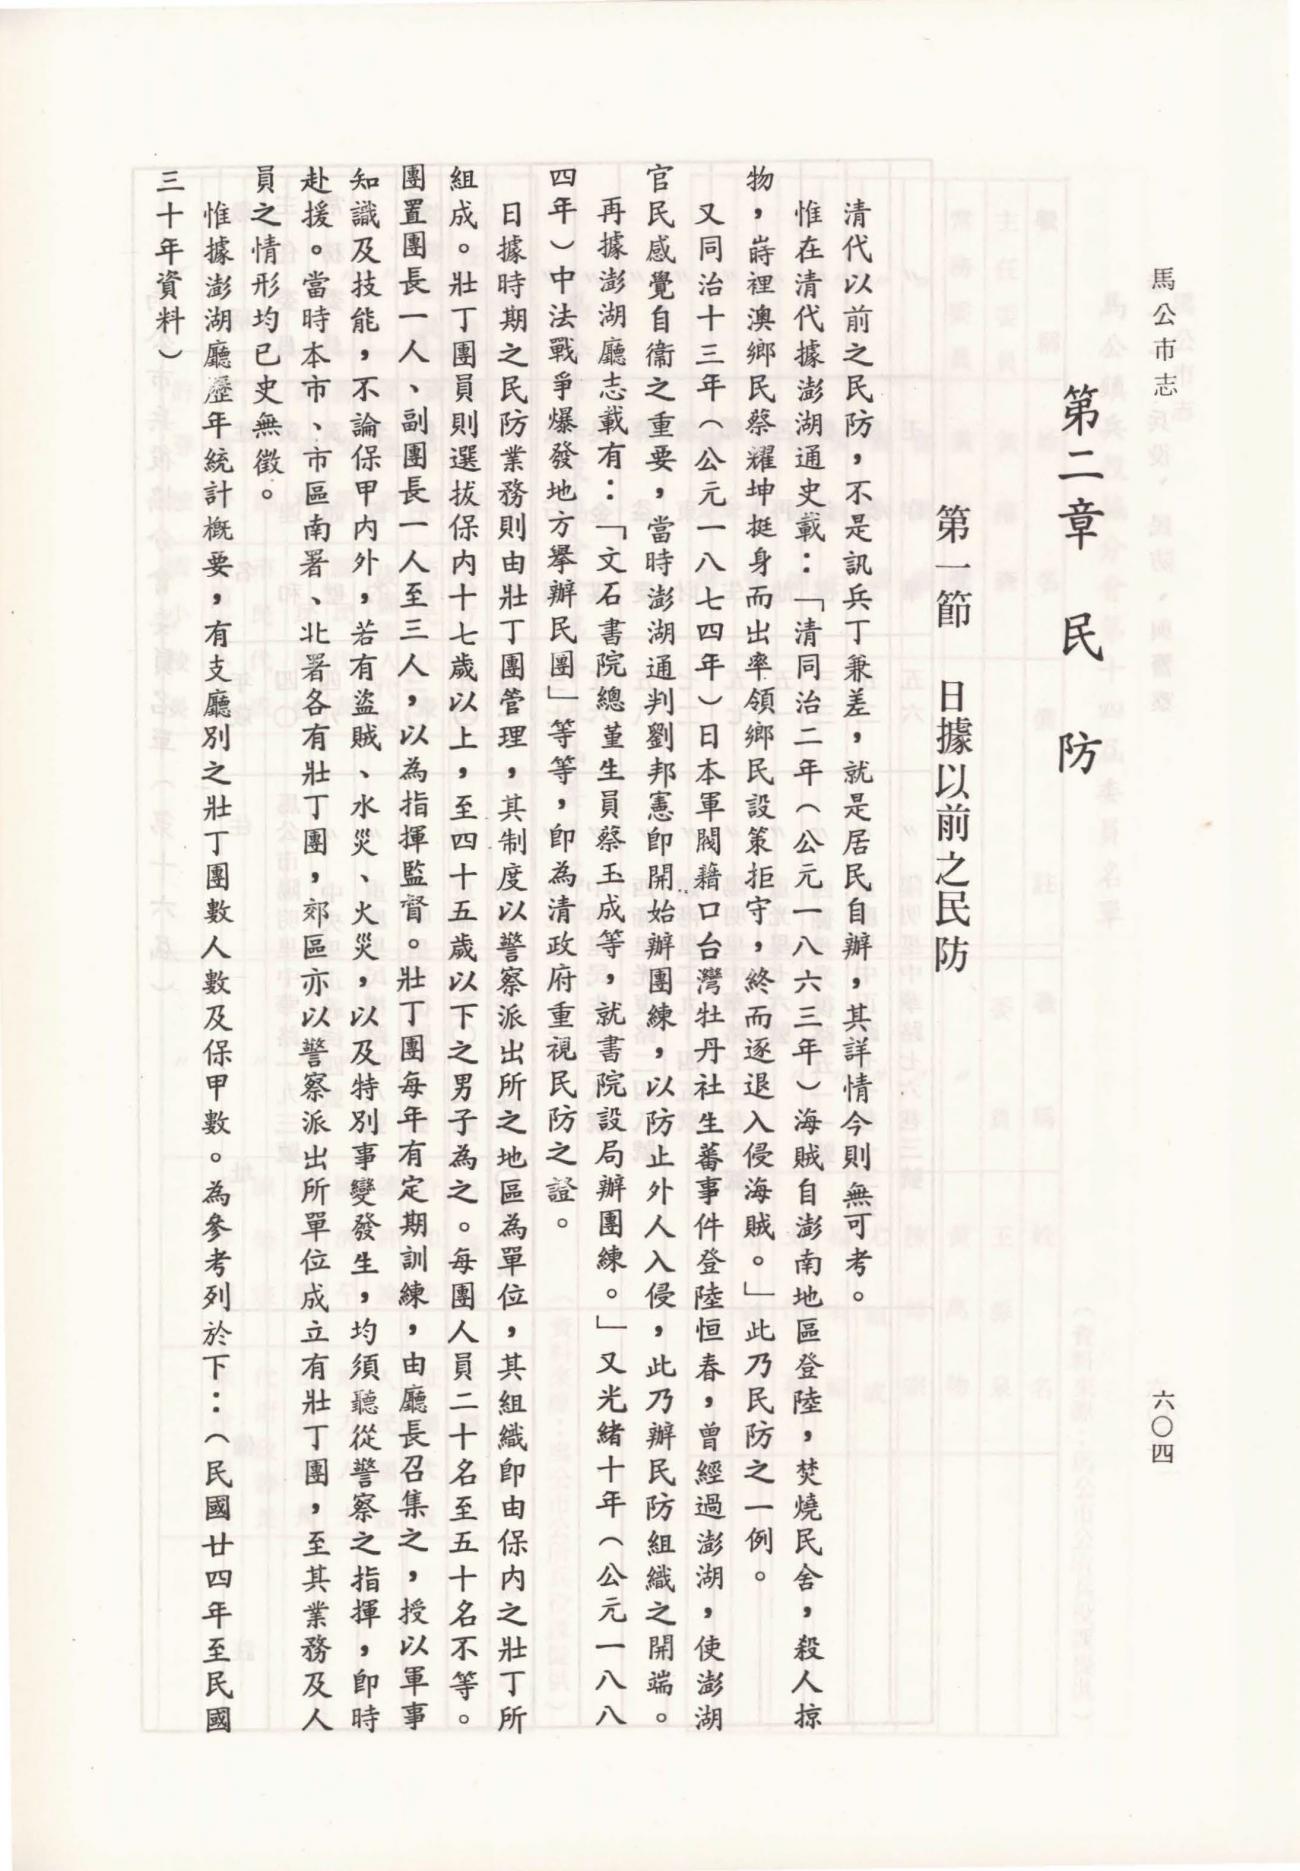 馬公市志
六〇四
第二章　民　防
第一節　日據以前之民防
清代以前之民防，不是訊兵丁兼差，就是居民自辦，其詳情今則無可考。
惟在清代據澎湖通史載：「清同治二年（公元一八六三年）海賊自澎南地區登陸，焚燒民舍，殺人掠
物，嵵裡澳鄉民蔡耀坤挺身而出率領鄉民設策拒守，終而逐退入侵海賊。」此乃民防之一例。
又同治十三年（公元一八七四年）日本軍閥藉口台灣牡丹社生蕃事件登陸恒春，曾經過澎湖，使澎湖
官民感覺自衞之重要，當時澎湖通判劉邦憲即開始辦團練，以防止外人入侵，此乃辦民防組織之開端。
再據澎湖廳志載有：「文石書院總董生員蔡玉成等，就書院設局辦團練。」又光緒十年（公元一八八
四年）中法戰爭爆發地方舉辦民團」等等，即為清政府重視民防之證。
日據時期之民防業務則由壯丁團管理，其制度以警察派出所之地區為單位，其組織即由保內之壯丁所
組成。壯丁團員則選拔保內十七歲以上，至四十五歲以下之男子為之。每團人員二十名至五十名不等。
團置團長一人、副團長一人至三人，以為指揮監督。壯丁團每年有定期訓練，由廳長召集之，授以軍事
知識及技能，不論保甲內外，若有盜賊、水災、火災，以及特別事變發生，均須聽從警察之指揮，即時
赴援。當時本市、市區南署、北署各有壯丁團，郊區亦以警察派出所單位成立有壯丁團，至其業務及人
員之情形均已史無徵。
惟據澎湖廳歷年統計概要，有支廳別之壯丁團數人數及保甲數。為參考列於下：（民國廿四年至民國
三十年資料）